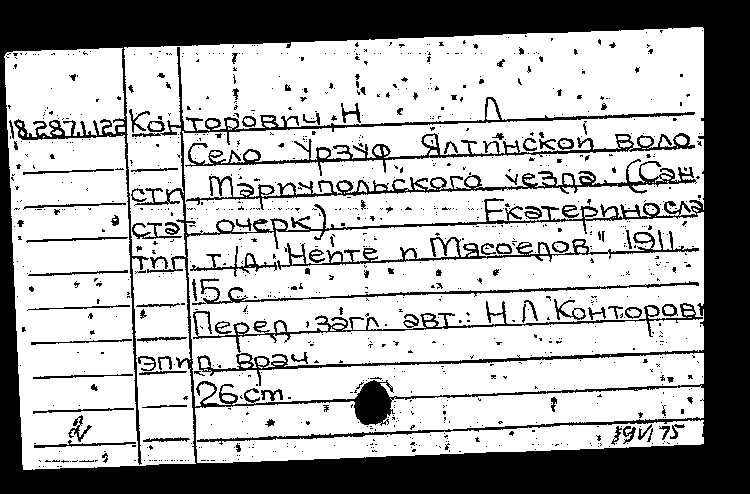 18.287.1.122 Конторович, Н Л
Село Урзуф Ялтинской воло-
сти, Мариупольского уезда. (Сан.
стат. очерк). Екатеринослав
тип. т/д. "Нейте и Мясоедов", 1911
15 с.
Перед загл. авт.: Н.Л. Конторови
эпид. врач.
26 см.
2 19 VI 75